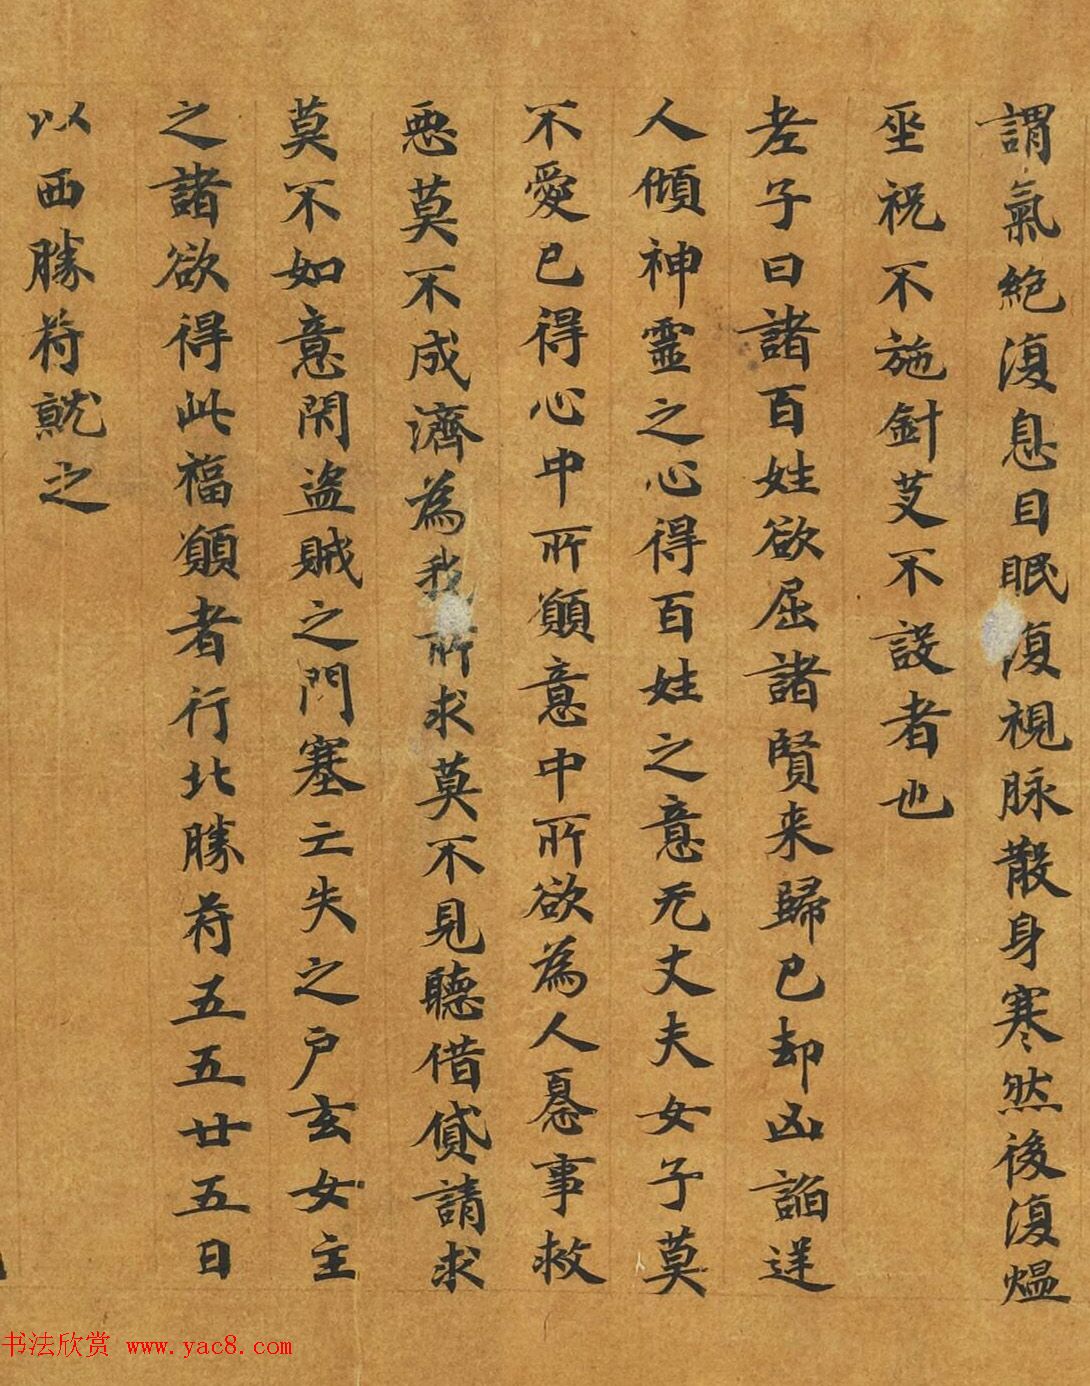 謂氣絕復息目眠復視脉散身寒然後復煴
巫祝不施針艾不設者也
老子曰諸百姓欲屈諸賢来歸已却凶逆
人傾神靈之心得百姓之意无丈夫女子莫
不愛已得心中所願意中所欲為人事救
惡莫不成濟為我所求莫不見聽借貸請求
莫不如意閇盜賊之門塞亡失之户玄女主
之諸欲得此福願者行北勝苻五五廿五日
以西勝苻就之
书法欣赏 www.yac8.com